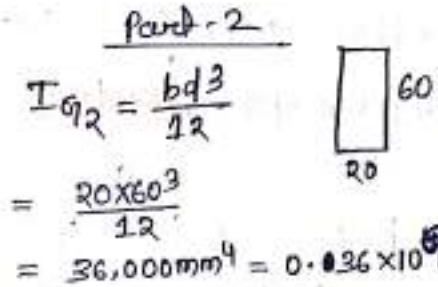 Part-2
I_G2 = bd³/12
60
20
= 20×60³/12
= 36,000mm⁴ = 0.036×10⁶